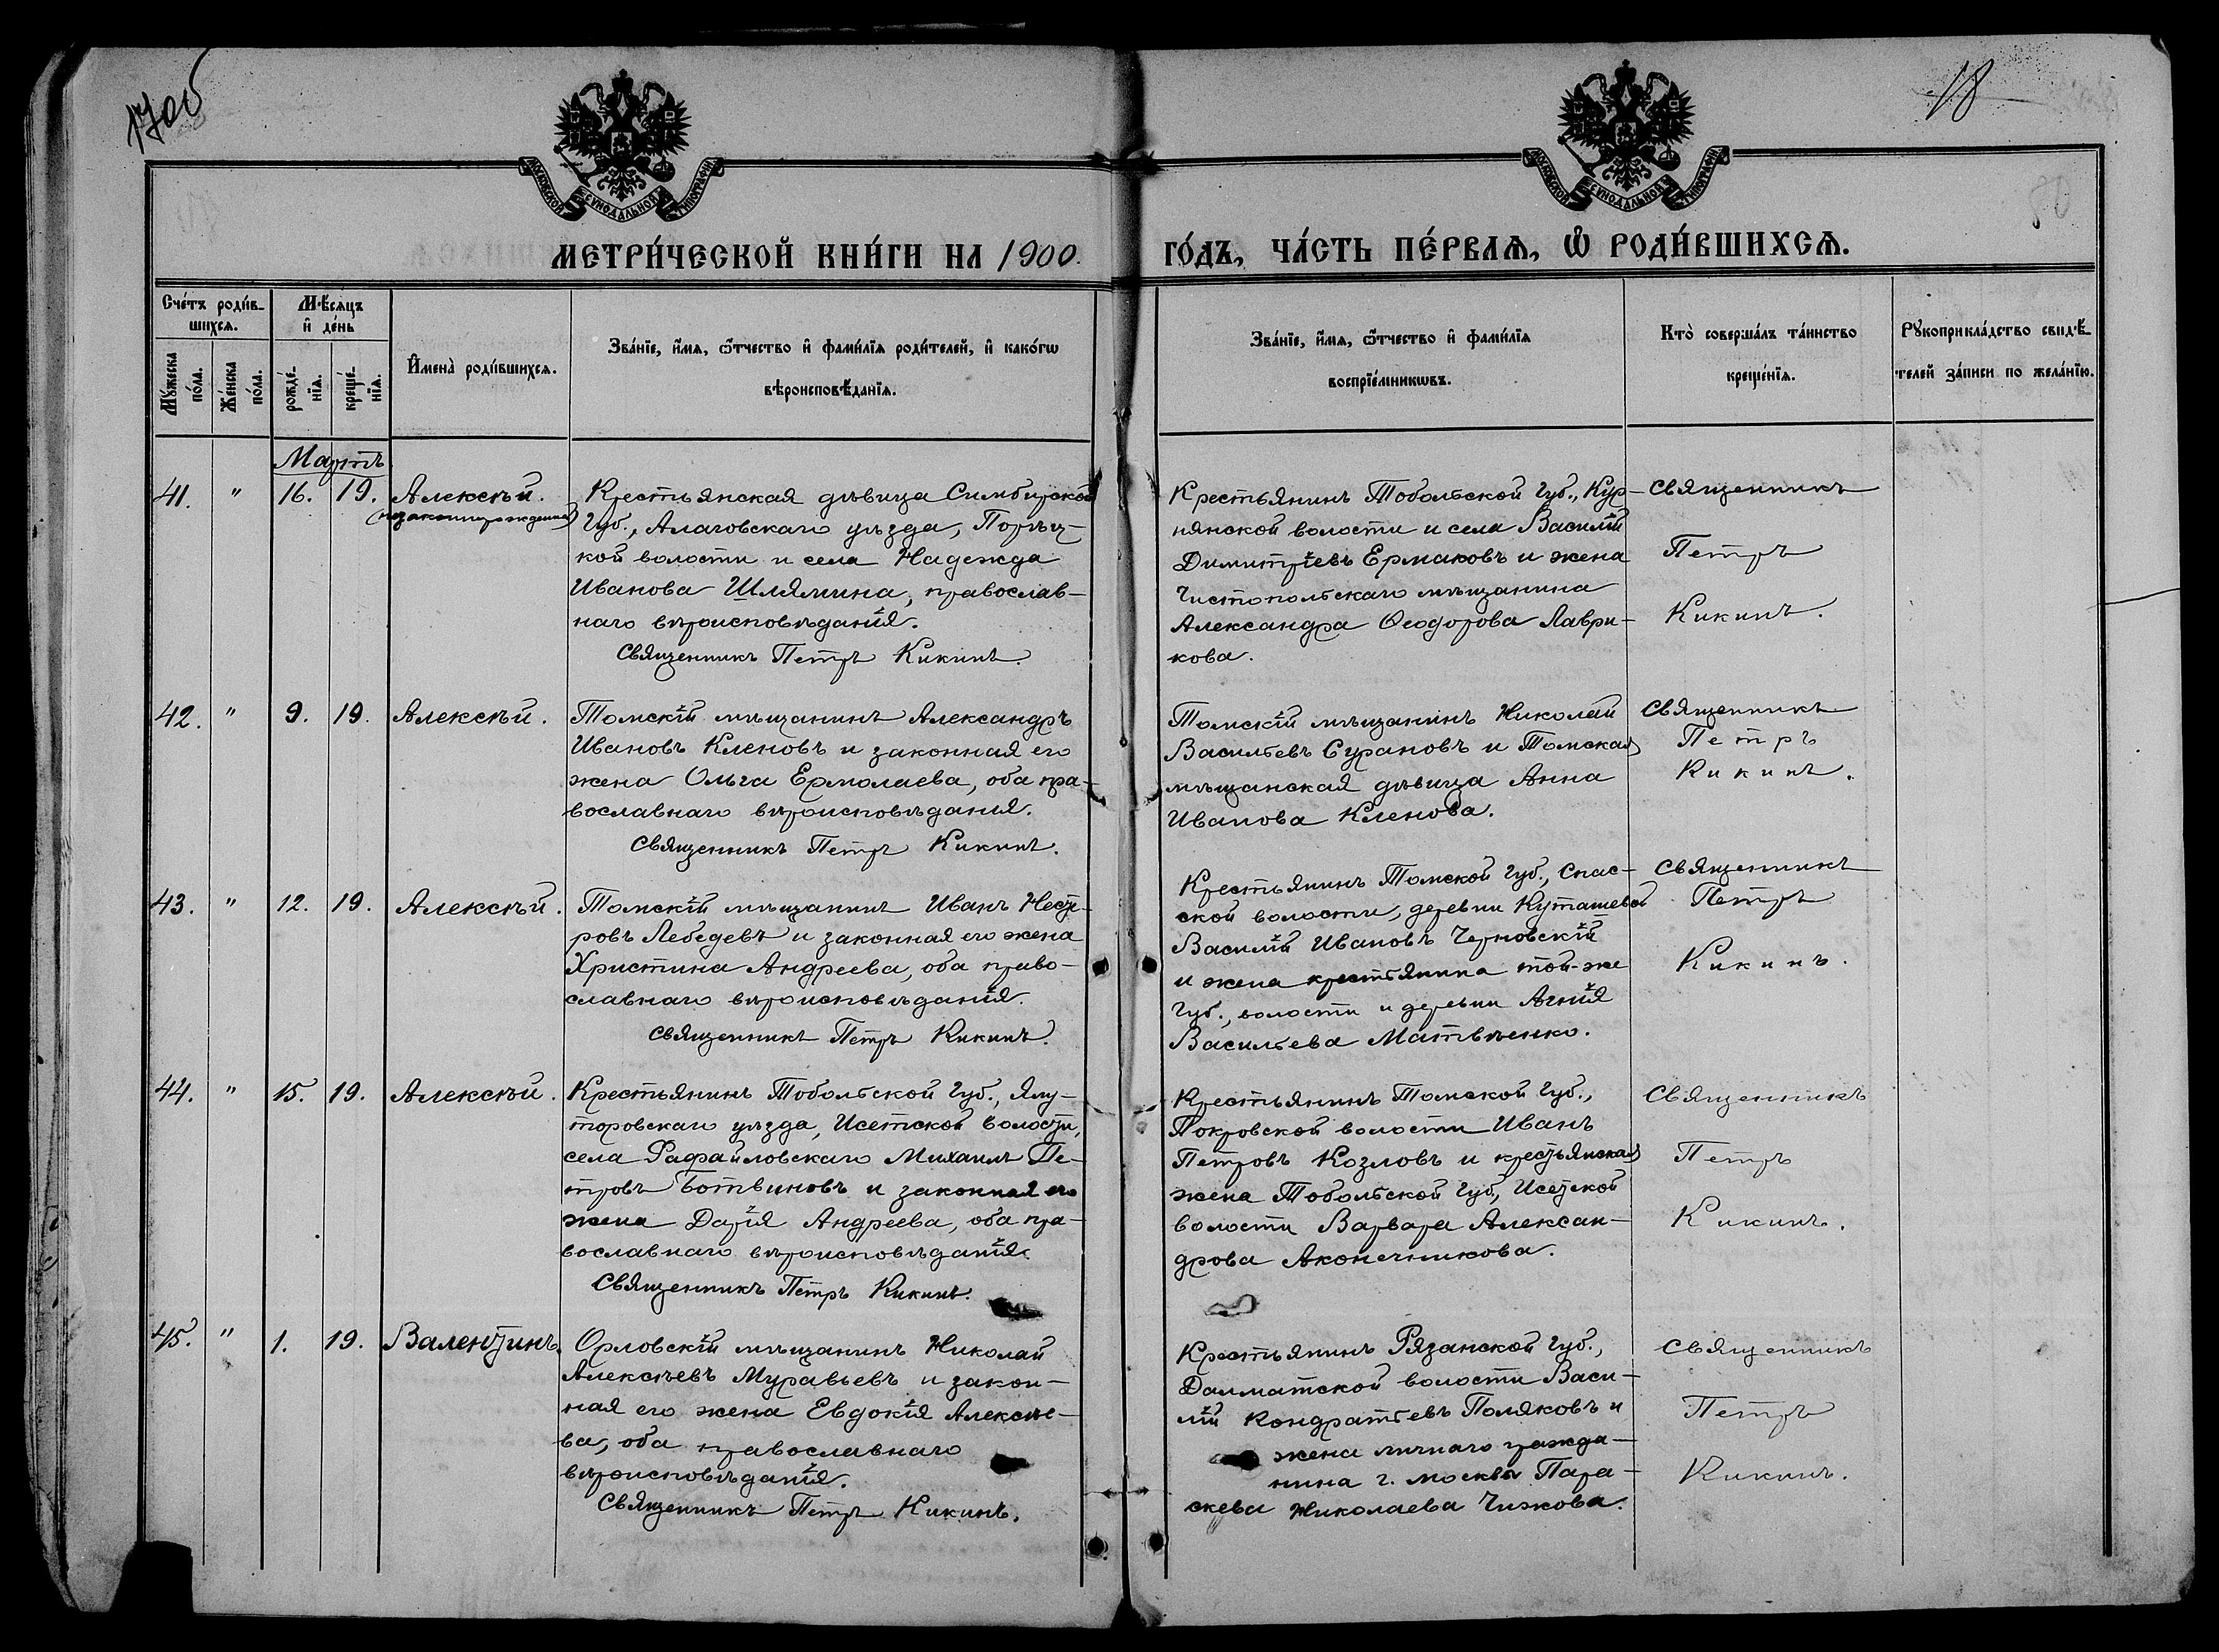 17об
18
МОСКОВСКОЙ СѴНОДАЛЬНОЙ ТИПОГРАФІИ
МОСКОВСКОЙ СѴНОДАЛЬНОЙ ТИПОГРАФІИ
МЕТРИ́ЧЕСКОЙ КНИ́ГИ НА 1900 ГО́ДЪ, ЧА́СТЬ ПЕ́РВАѦ, Ѽ РОДИ́ВШИХСѦ.
Сче́тъ роди́в-
шихсѧ.
Мꙋ́жеска
по́ла.
Же́нска
по́ла.
Мѣ́сѧцъ
и҆ де́нь
рожде́-
нїѧ.
креще́-
нїѧ.
И҆мена̀ роди́вшихсѧ.
Зва́нїе, и҆́мѧ, ѻ҆́тчество и҆ фами́лїѧ роди́телей, и҆ како́гѡ
вѣроисповѣ́данїѧ.
Зва́нїе, и҆́мѧ, ѻ҆́тчество и҆ фами́лїѧ
воспрїе́мникѡвъ.
Кто̀ соверша́лъ та́инство
креще́нїѧ.
Рꙋкоприкла́дство свидѣ́-
телей за́писи по жела́нїю.
Мартъ
41. " 16. 19. Алексѣй.
(незаконнорожденный)
Крестьянская дѣвица Симбирской
Губ., Алатовскаго уѣзда, Порѣц-
кой волости и села Надежда
Иванова Шлямина, православ-
наго вѣроисповѣданія.
Священникъ Петръ Кикинъ.
Крестьянинъ Тобольской Губ., Кур-
нянской волости и села Василій
Димитріевъ Ермаковъ и жена
Чистопольскаго мѣщанина
Александра Ѳеодорова Лаври-
кова.
Священникъ
Петръ
Кикинъ.
42. " 9. 19. Алексѣй.
Томскій мѣщанинъ Александръ
Ивановъ Кленовъ и законная его
жена Ольга Ермолаева, оба пра-
вославнаго вѣроисповѣданія.
Священникъ Петръ Кикинъ.
Томскій мѣщанинъ Николай
Васильевъ Сурановъ и Томская
мѣщанская дѣвица Анна
Иванова Кленова.
Священникъ
Петръ
Кикинъ.
43. " 12. 19. Алексѣй.
Томскій мѣщанинъ Иванъ Несте-
ровъ Лебедевъ и законная его жена
Христина Андреева, оба право-
славнаго вѣроисповѣданія.
Священникъ Петръ Кикинъ.
Крестьянинъ Томской Губ., Спас-
ской волости, деревни Куташевой
Василій Ивановъ Черновскій
и жена крестьянина той-же
Губ., волости и деревни Агнія
Васильева Матвѣенко.
Священникъ
Петръ
Кикинъ.
44. " 15. 19. Алексѣй.
Крестьянинъ Тобольской Губ., Ялу-
торовскаго уѣзда, Исетской волости,
села Рафайловскаго Михаилъ Пе-
тровъ Ботвиновъ и законная его
жена Дарія Андреева, оба пра-
вославнаго вѣроисповѣданія.
Священникъ Петръ Кикинъ.
Крестьянинъ Томской Губ.,
Покровской волости Иванъ
Петровъ Козловъ и крестьянская
жена Тобольской Губ., Исетской
волости Варвара Алексан-
дрова Аконечникова.
Священникъ
Петръ
Кикинъ.
45. " 1. 19. Валентинъ.
Орловскій мѣщанинъ Николай
Алексѣевъ Муравьевъ и закон-
ная его жена Евдокія Алексѣе-
ва, оба православнаго
вѣроисповѣданія.
Священникъ Петръ Кикинъ.
Крестьянинъ Рязанской Губ.,
Далматской волости Васи-
лій Кондратьевъ Поляковъ и
жена личнаго гражда-
нина г. Москвы Пара-
скева Николаева Чижова.
Священникъ
Петръ
Кикинъ.